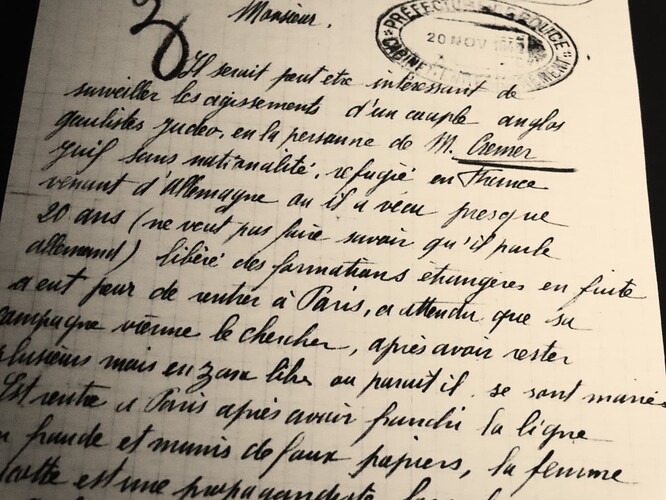 20
Monsieur.
PREFECTURE DE POLICE
CABINET
20 NOV
Il serait peut etre interessant de
surveiller les agissements d'un couple anglos
gaulistes judeo, en la personne de M. Cremer
Juif sans nationalité, refugié en France
venant d'Allemagne ou il a vécu presque
20 ans (ne veut pas faire savoir qu'il parle
allemand) libéré des formations étrangères en fuite
a eut peur de rentrer à Paris, a attendu que sa
campagne vienne le chercher, après avoir rester
plusieurs mais en zone libre ou parait il se sont mariés
Est rentré à Paris après avoir franchi la ligne
en fraude et munis de faux papiers, la femme
cotte est une propagandiste